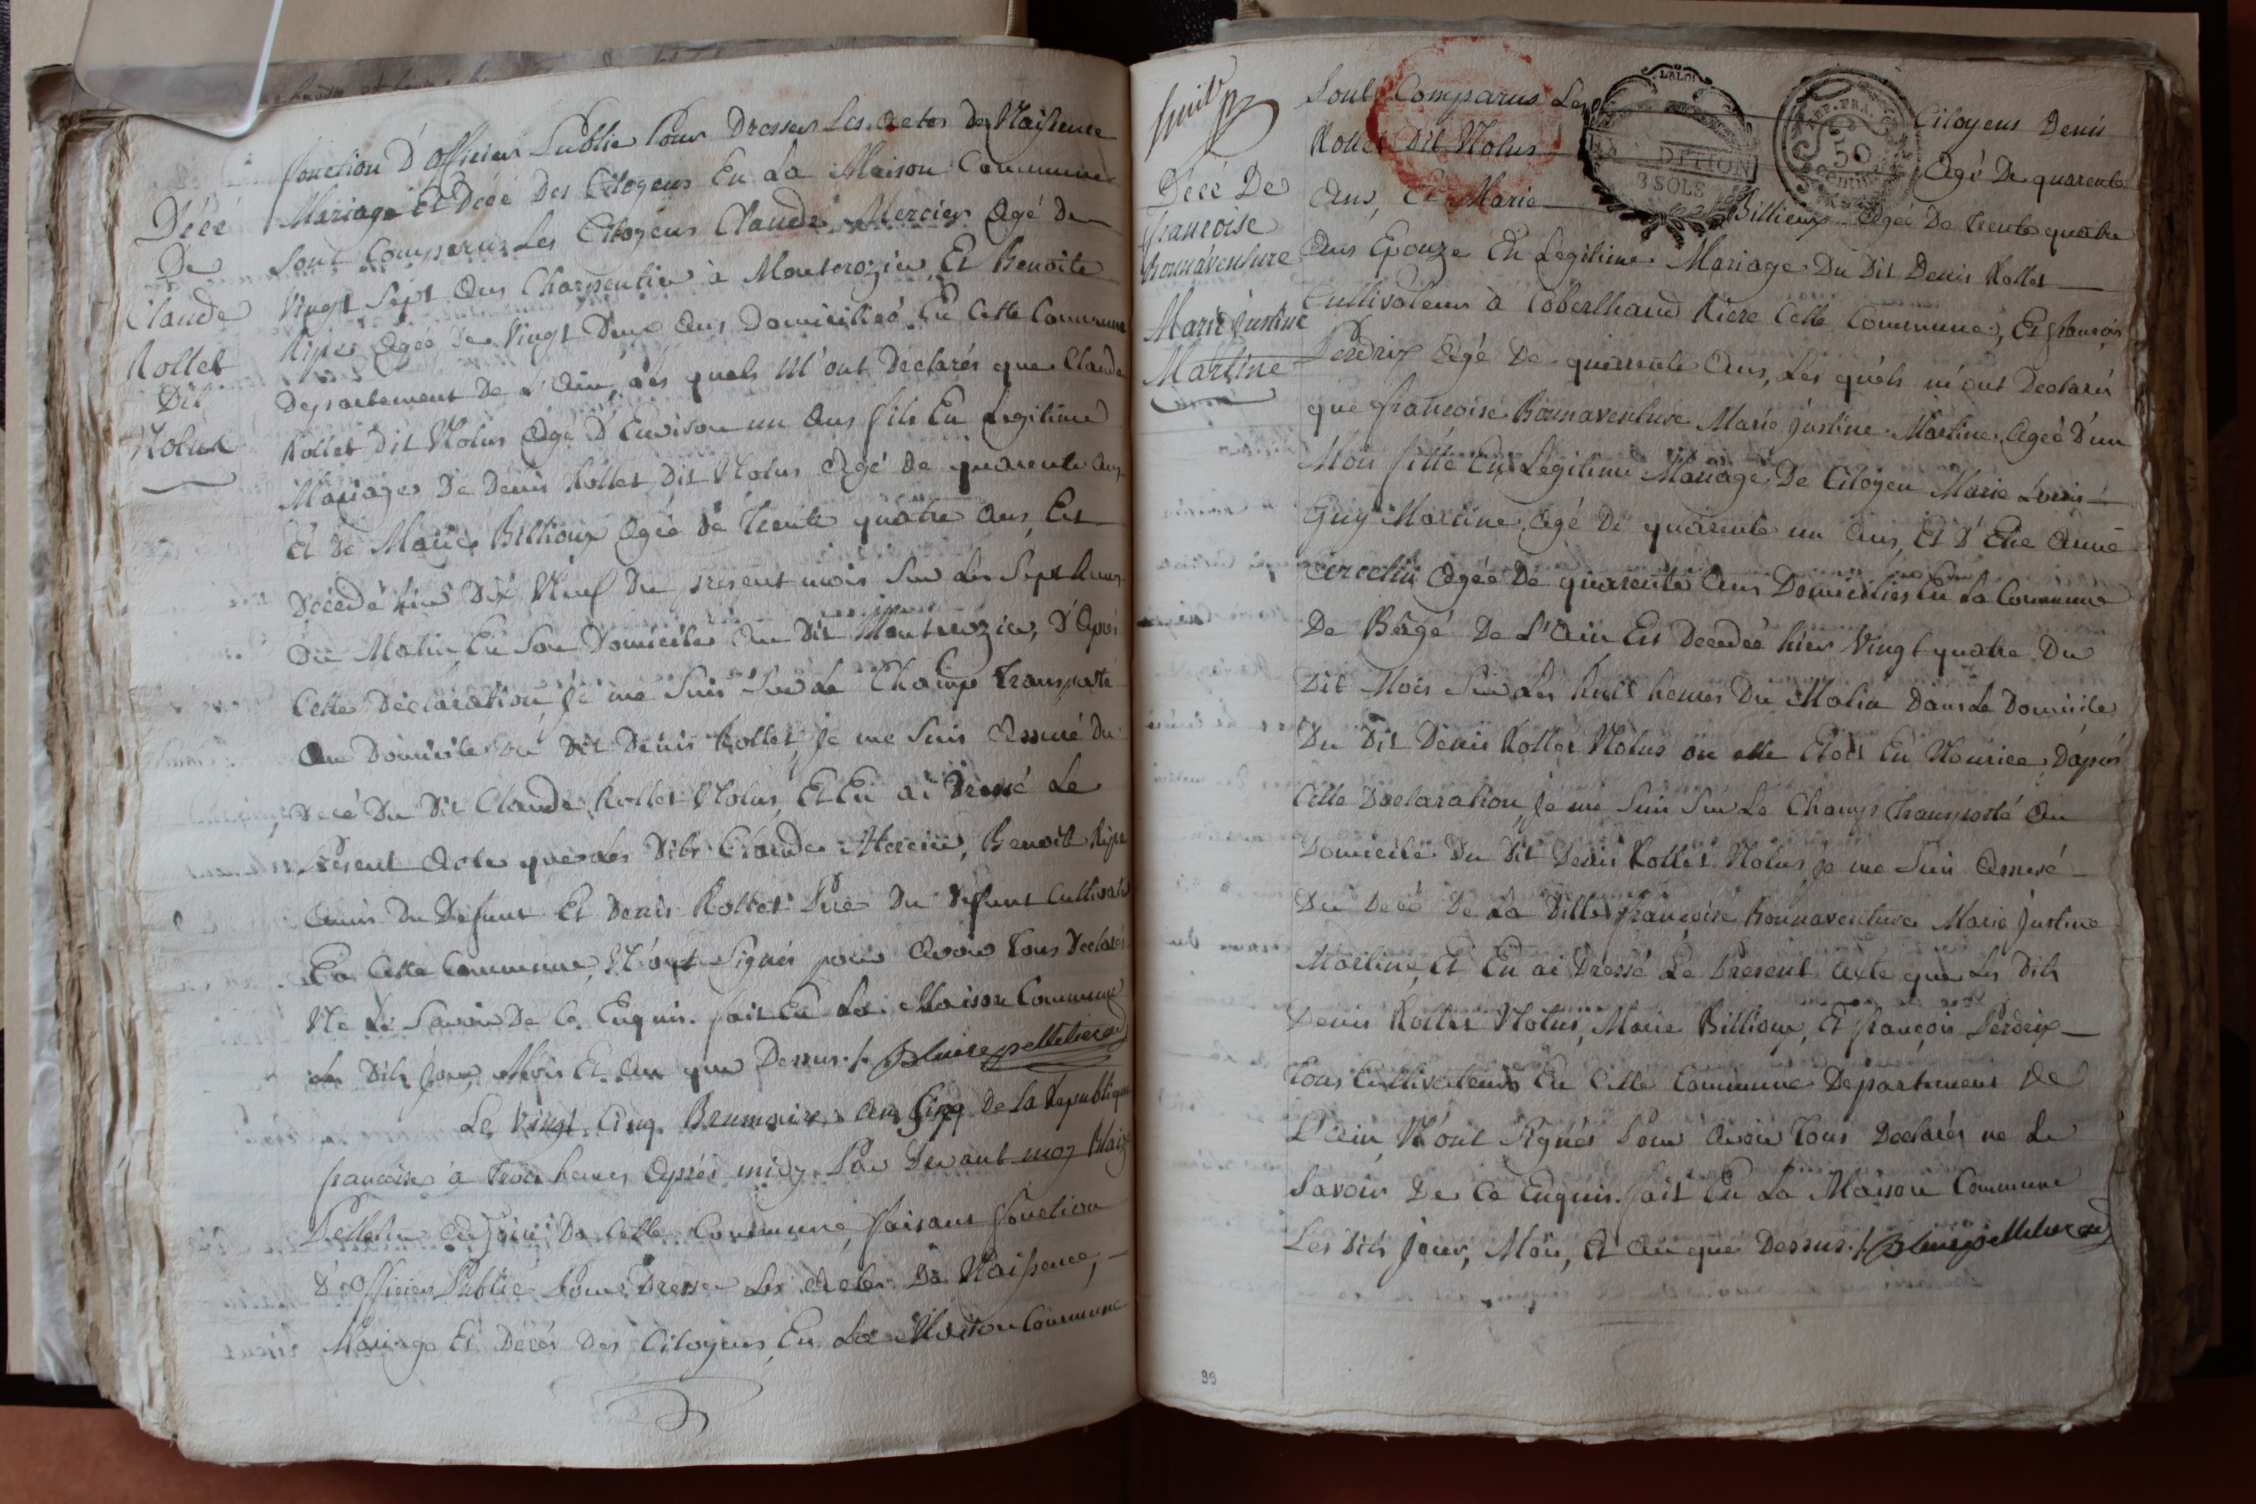 fonction d'officier Public Pour Dresser Les actes de Naissence
Mariage Et Décé Des Citoyens En La Maison Commune
Décé
De
Claude
Rollet
Dit
Nolus
Sont Comparus Les Citoyens Claude Mercier Agé De
Vingt Sept ans Charpentier à Montrozin Et Benoite
Ripes Agée De Vingt Deux ans Domiciliés En Cette Commune
Departement De l'Ain, Les quels M'ont Déclarés que Claude
Rollet dit Nolus Agé D'Environ un ans fils En Legitime
Mariages De Denis Rollet Dit Nolus Agé De quarente ans
Et De Marie Billioux Agée De Trente quatre ans, Est
Decedé hier Dix Neuf Du present mois Sur Les Sept heures
Du Matin En Son Domicile Au Dit Montrozin, D'Après
Cette Déclaration Je me Suis Sur Le Champ Transporté
Au Domicile du Dit Denis Rollet, Je me Suis Assuré Du
Decé Du Dit Claude Rollet Nolus, Et En ai Dressé Le
Present Acte que Les Dits Claude Mercier, Benoite Ripe
Amis Du Defunt Et Denis Rollet Pere Du Defunt Cultivateur
En Cette Commune, N'ont Signés pour Avoir Tous Declarés
Ne Le Savoir De Ce Enquis. fait En La Maison Commune
Les Dits Jour, Mois Et An que Dessus ./. Blaise pelletier
Le Vingt Cinq Brumaire an Cinq De La Republique
francoise à Trois heures Après midy Par Devant moy Blaize
Pelletier Adjoint De Cette Commune, faisant fonction
D'Officier Public Pour Dresser Les Actes De Naissence,
Mariage Et Décès Des Citoyens, En La Maison Commune
huit
Décé De
francoise
Bonnaventure
Marie Justine
Martine
Sont Comparus Les Citoyens Denis
Rollet Dit Nolus Agé De quarente
ans, Et Marie Billioux Agée De trente quatre
ans Epouze En Legitime Mariage Du Dit Denis Rollet
Cultivateur à Riere Cette Commune, Et François
Perdrix Agé De quarente ans, Les quels m'ont Declarés
que francoise Bonnaventure Marie Justine Martine, Agée D'un
Mois fille En Legitime Mariage De Citoyen Marie Louis
Guy Martine Agé De quarente un ans, Et D'Etie Anne
Agée De quarente ans Domiciliés En La Commune
De Bâgé De L'Ain Est Decedée hier Vingt quatre Du
Dit Mois Sur Les huit heures Du Matin Dans Le Domicile
Du Dit Denis Rollet Nolus ou elle Etoit En Nourice, D'après
Cette Declaration, Je me Suis Sur Le Champ Transporté Au
Domicile Du Dit Denis Rollet Nolus Je me Suis Assuré
Du Decé De La Ditte françoise Bonnaventure Marie Justine
Martine, Et En ai Dressé Le Present Acte que Les Dits
Denis Rollet Nolus, Marie Billioux, Et françois Perdrix
Tous Cultivateurs En Cette Commune Departement De
L'Ain, N'ont Signés Pour Avoir Tous Declarés ne Le
Savoir De Ce Enquis. fait En La Maison Commune
Les Dits Jour, Mois, Et An que Dessus ./. Blaise pelletier
LA LOI
3 SOLS
REP. FRA.
50
CENTIMES
99